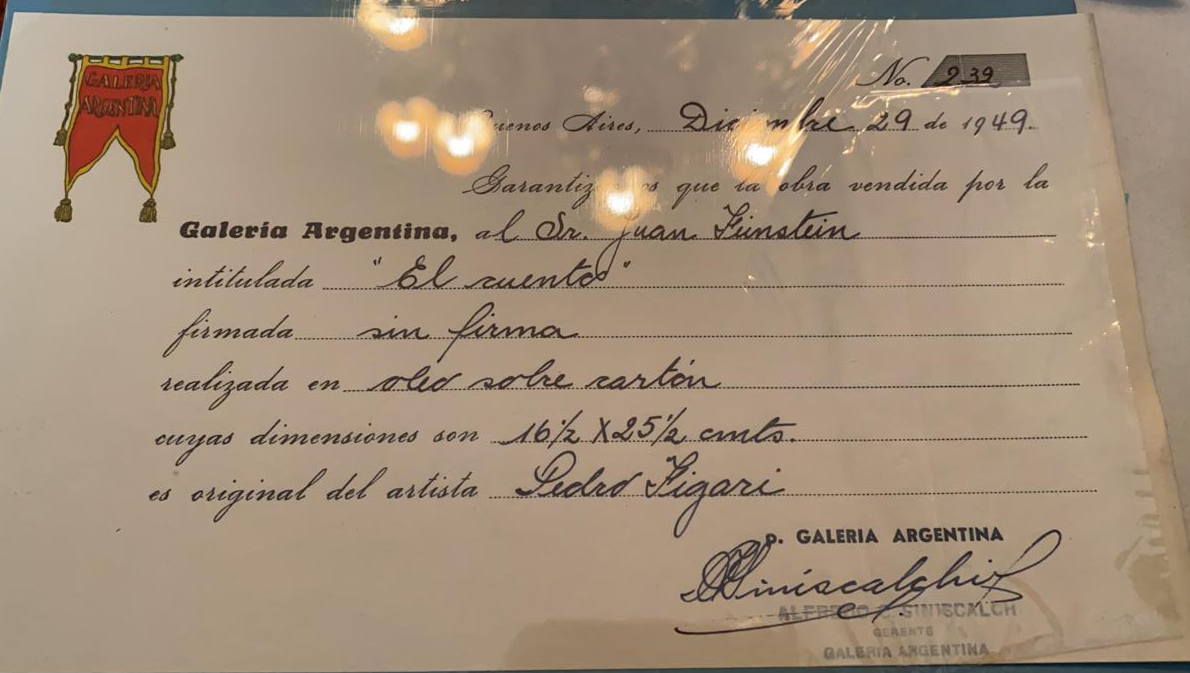 GALERIA
ARGENTINA
No. 239
Buenos Aires, Diciembre 29 de 1949.
Garantizamos que la obra vendida por la
Galería Argentina, al Sr. Juan
intitulada "El cuento"
firmada sin firma
realizada en oleo sobre cartón
cuyas dimensiones son 16½ X 25½ cmts.
es original del artista Pedro Figari
p. GALERIA ARGENTINA
Siniscalchi
ALFREDO C. SINISCALCH
GERENTE
GALERIA ARGENTINA